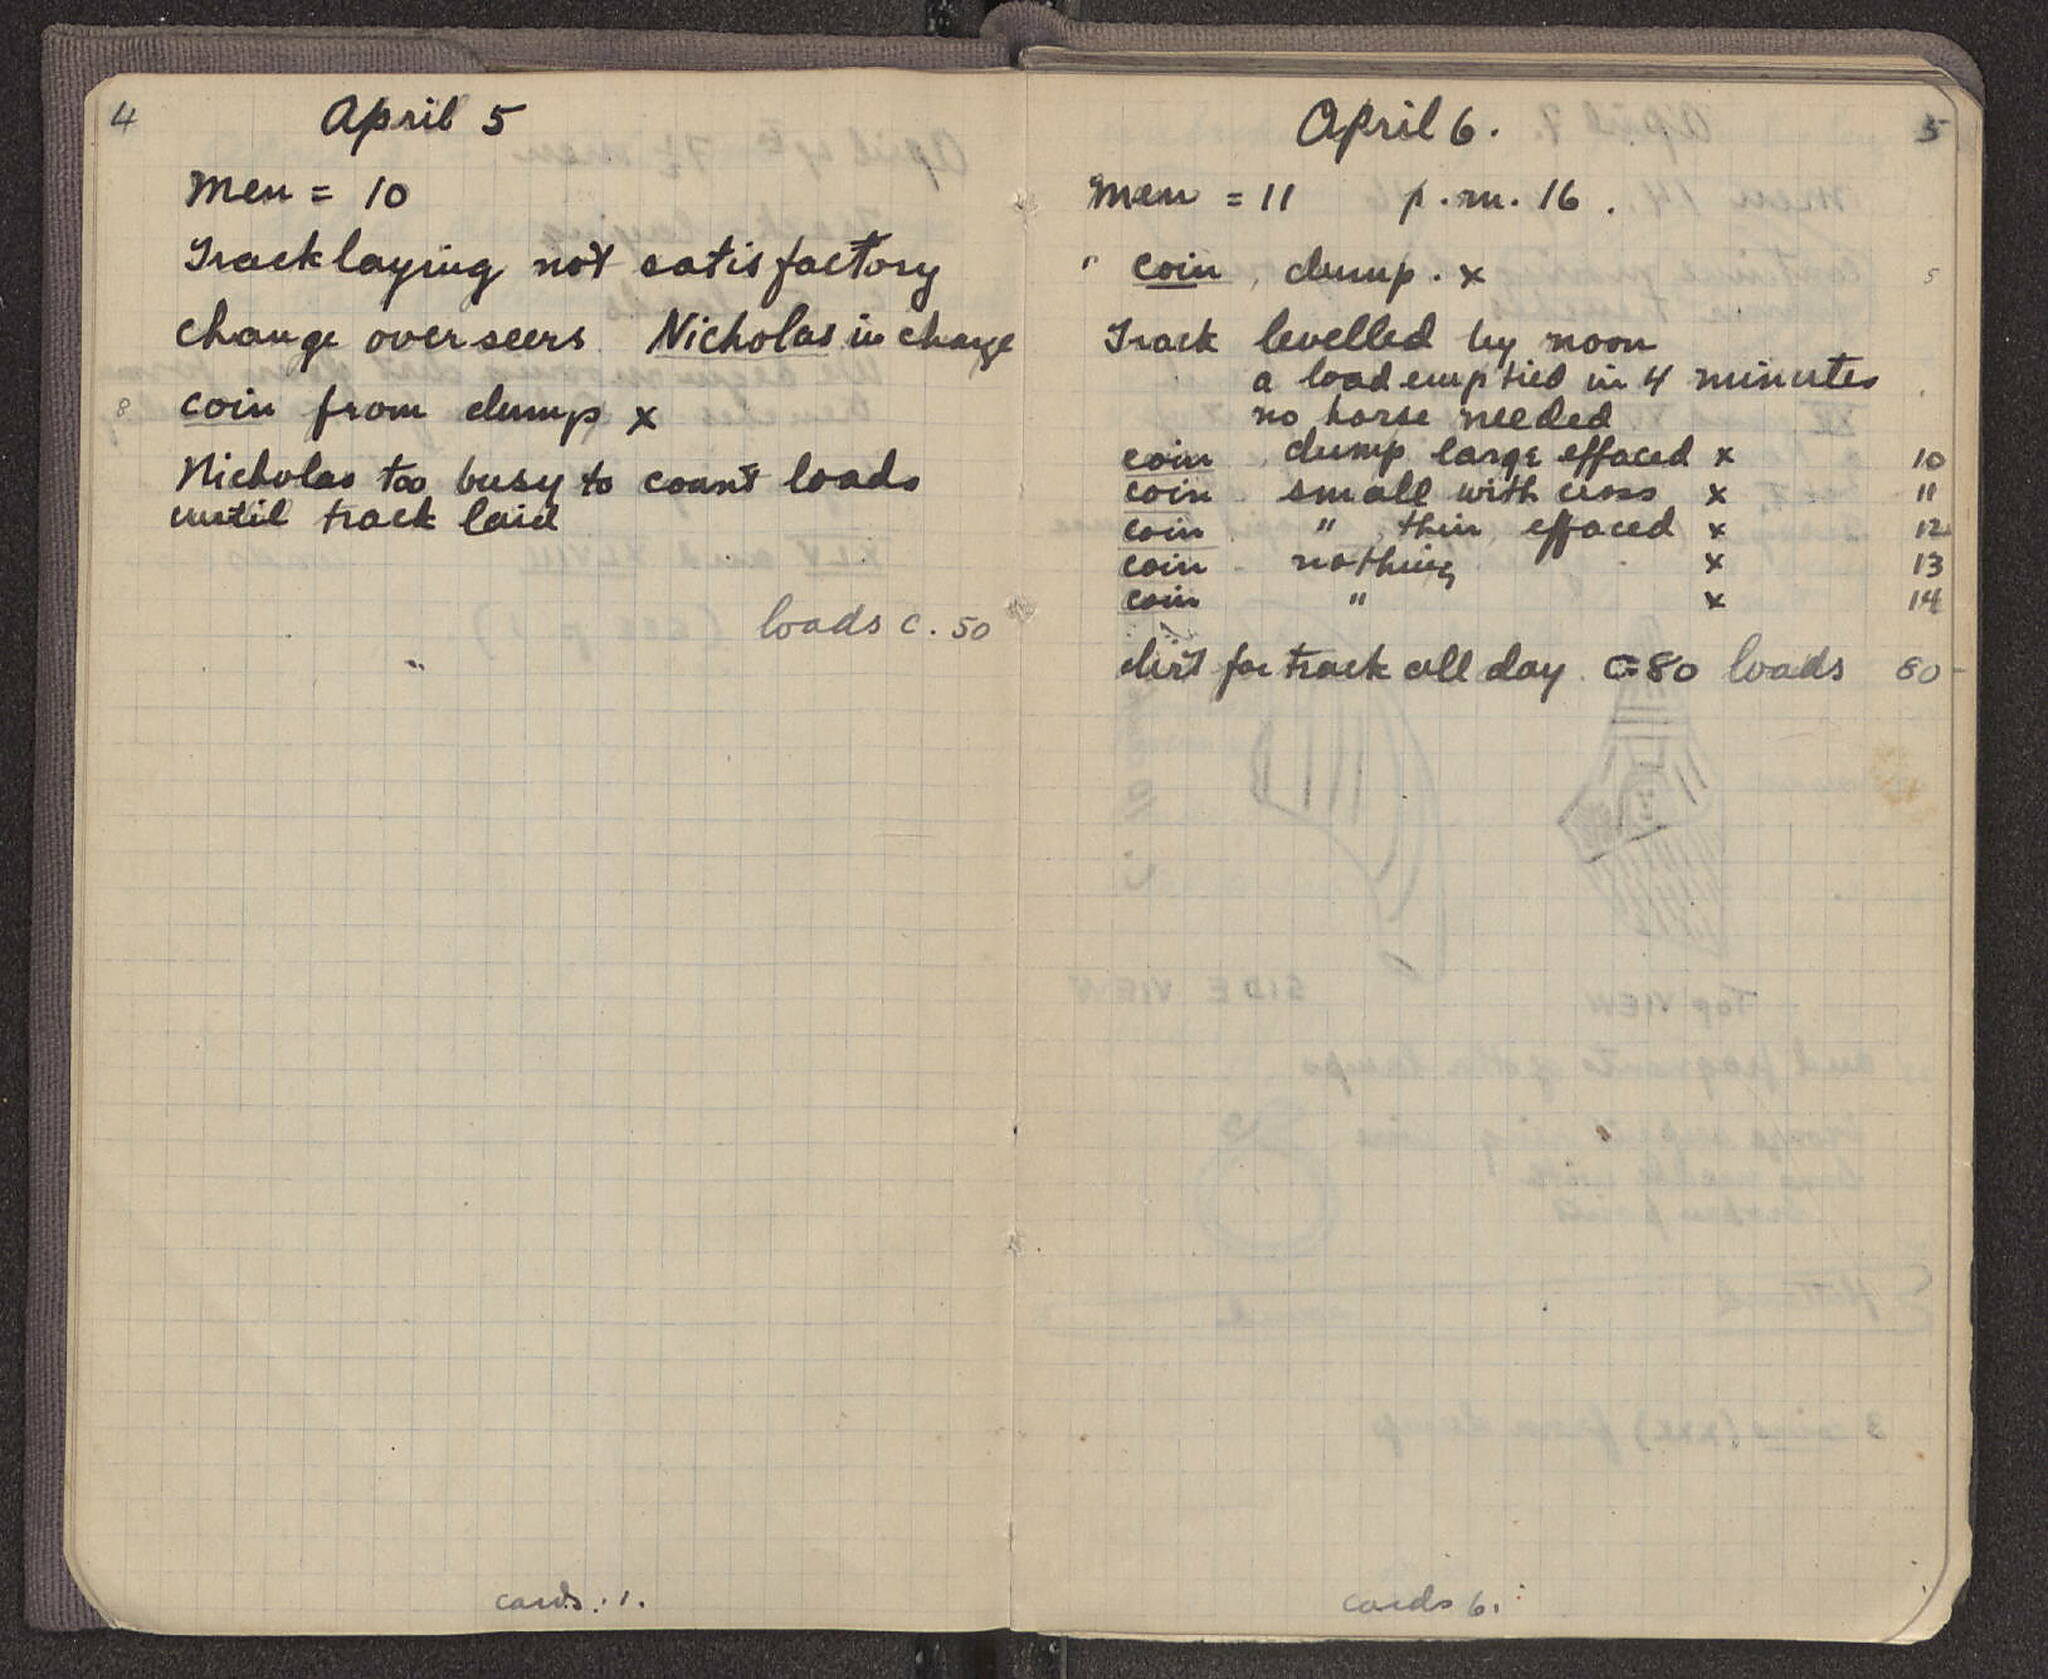 4
April 5
Men = 10
Track laying not satisfactory
change overseers Nicholas in charge
8 coin from dump x
Nicholas too busy to count loads
until track laid
loads c. 50
cards . 1.
5
April 6.
Men = 11 p.m. 16 .
" coin, dump. x 5
Track levelled by noon
a load emptied in 4 minutes
no horse needed
coin dump large effaced x 10
coin small with cross x 11
coin " thin effaced x 12
coin nothing x 13
coin " x 14
dirt for track all day C=80 loads 80-
cards 6.